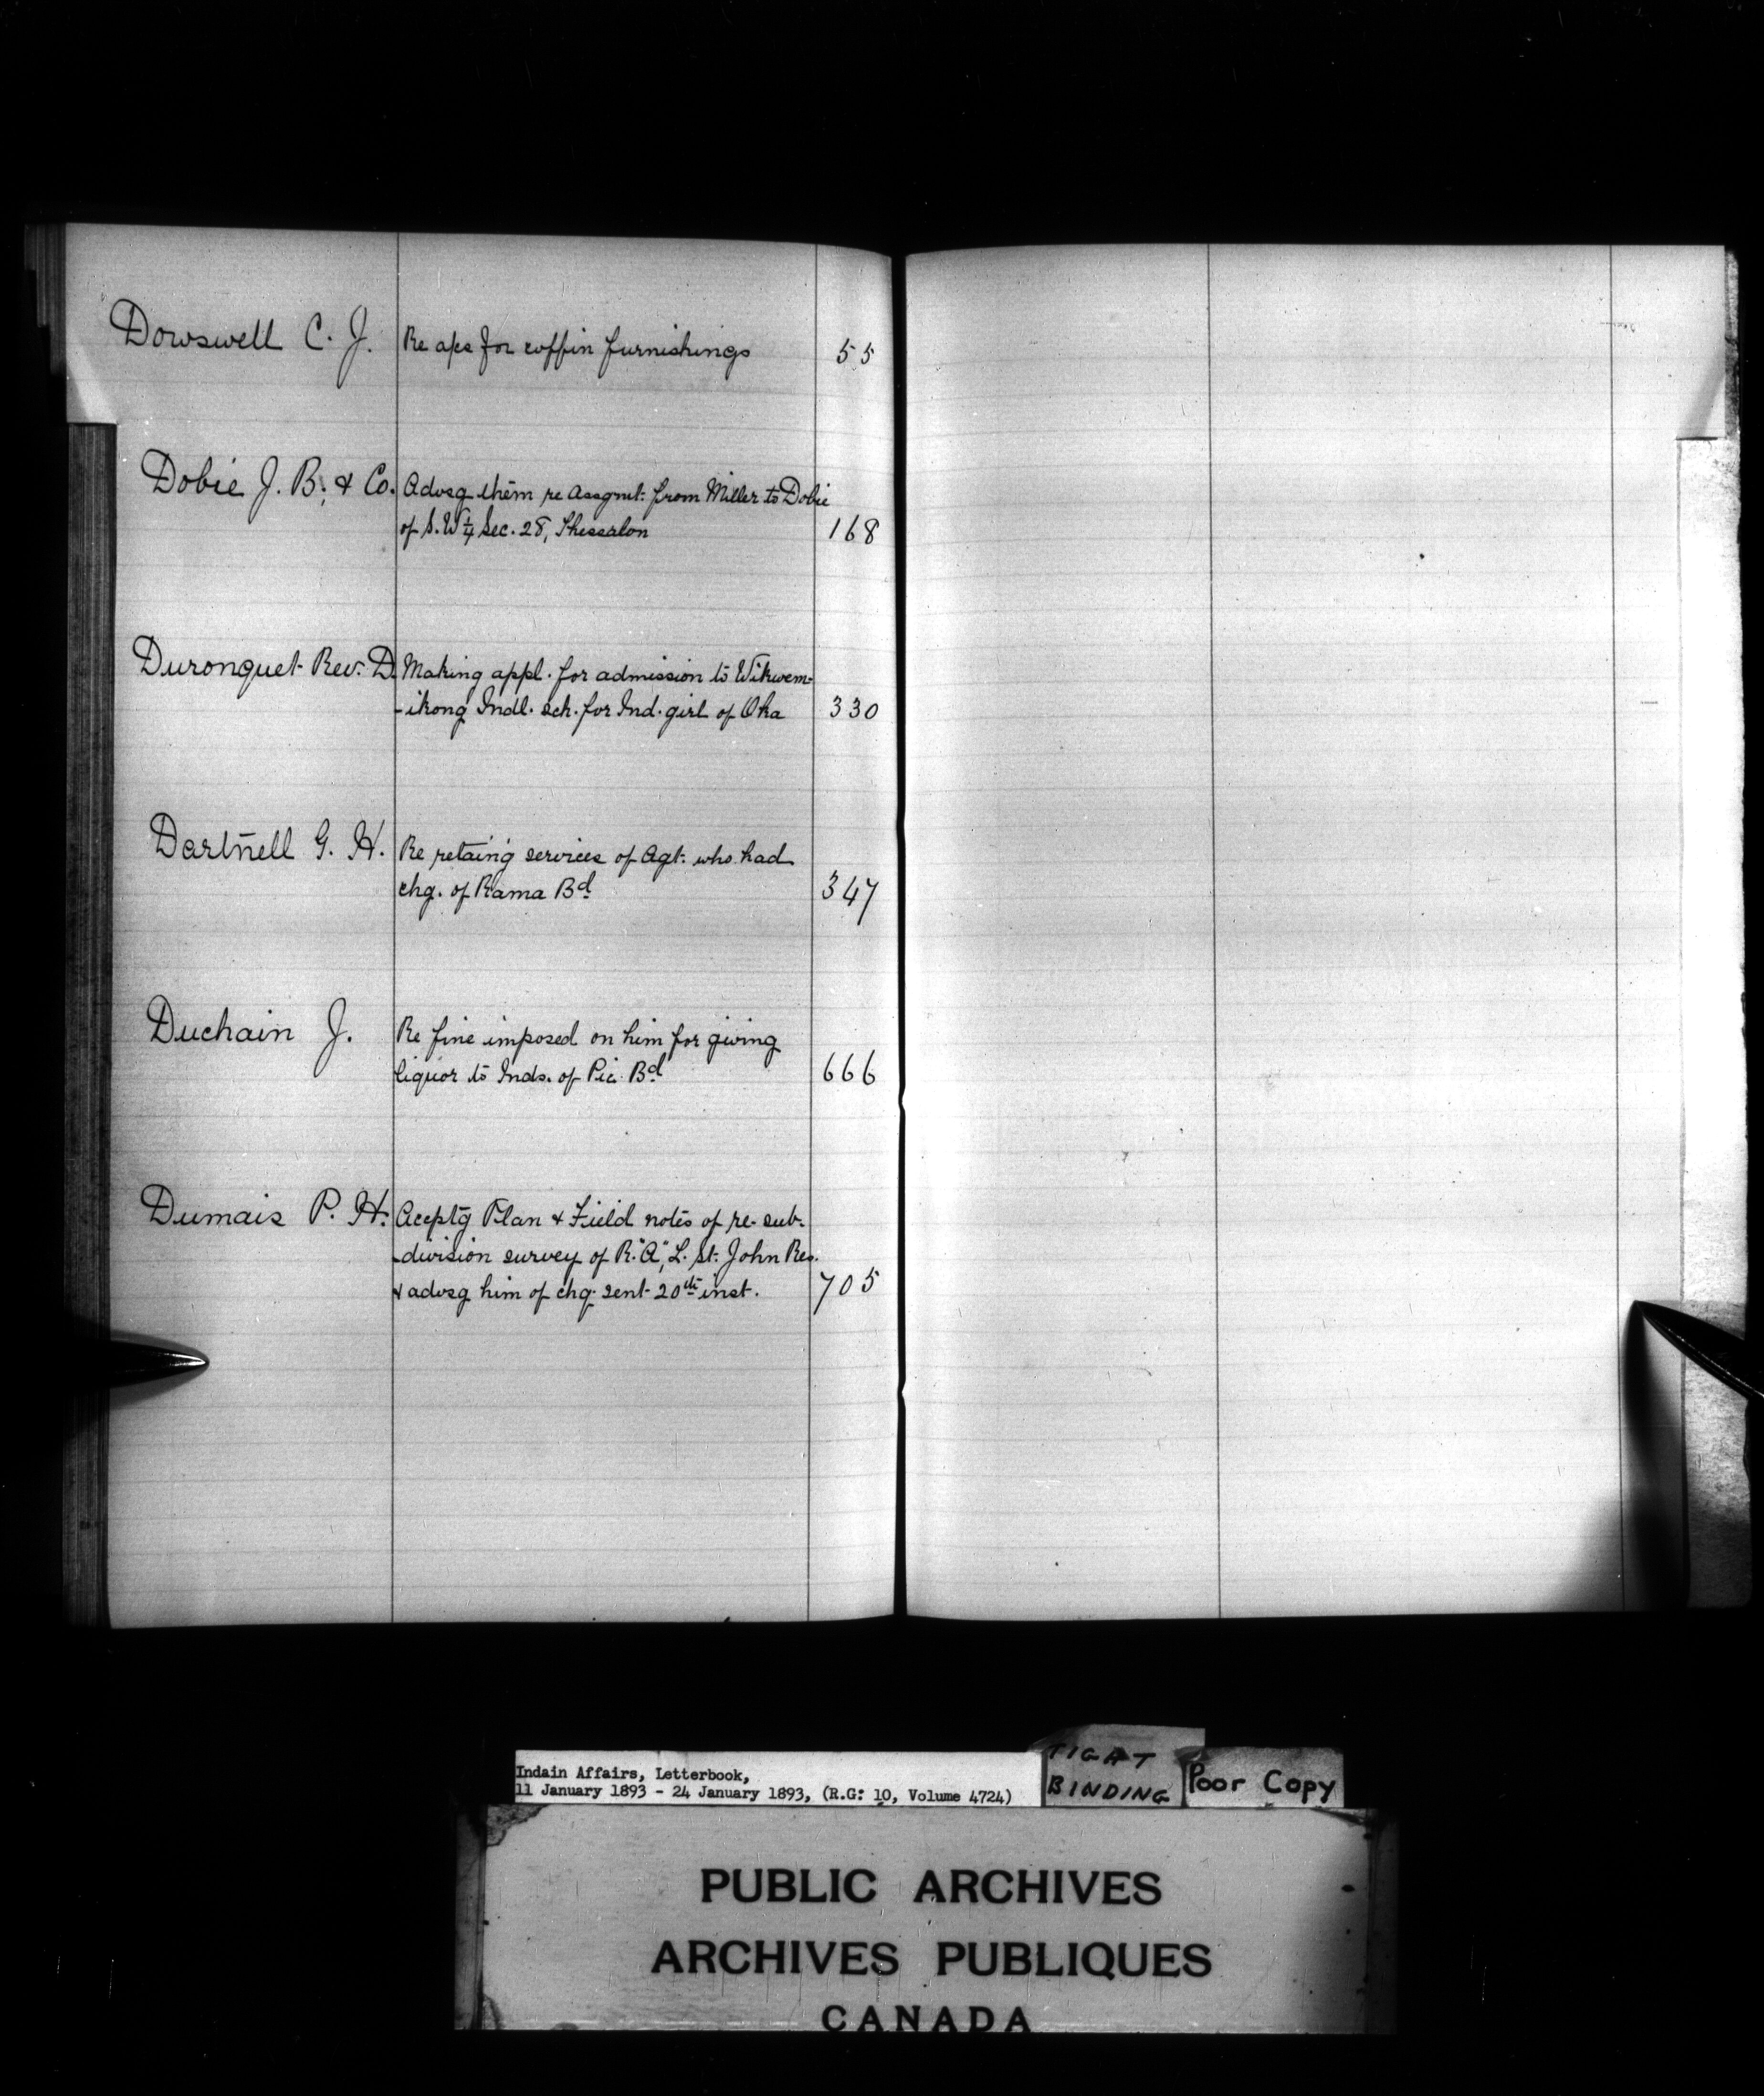 Dowswell C. J. Re a/cs for coffin furnishings 55
Dobie J. B. & Co. Advsg them re Assgmt. from Miller to Dobie
of S.W¼ Sec. 28, Thessalon 168
Duronquet Rev. D. Making appl. for admission to Wikwem-
-ikong Indl. sch. for Ind. girl of Oka 330
Dartnell G. H. Re retaing services of Agt. who had
chg. of Rama Bd 347
Duchain J. Re fine imposed on him for giving
liquor to Inds. of Pic Bd 666
Dumais P. H. Acceptg Plan & Field notes of re-sub-
-division survey of R. "A", L. St. John Res.
& advsg him of chq. sent 20th inst. 705
Indain Affairs, Letterbook,
11 January 1893 - 24 January 1893, (R.G: 10, Volume 4724)
TIGHT
BINDING
Poor Copy
PUBLIC ARCHIVES
ARCHIVES PUBLIQUES
CANADA